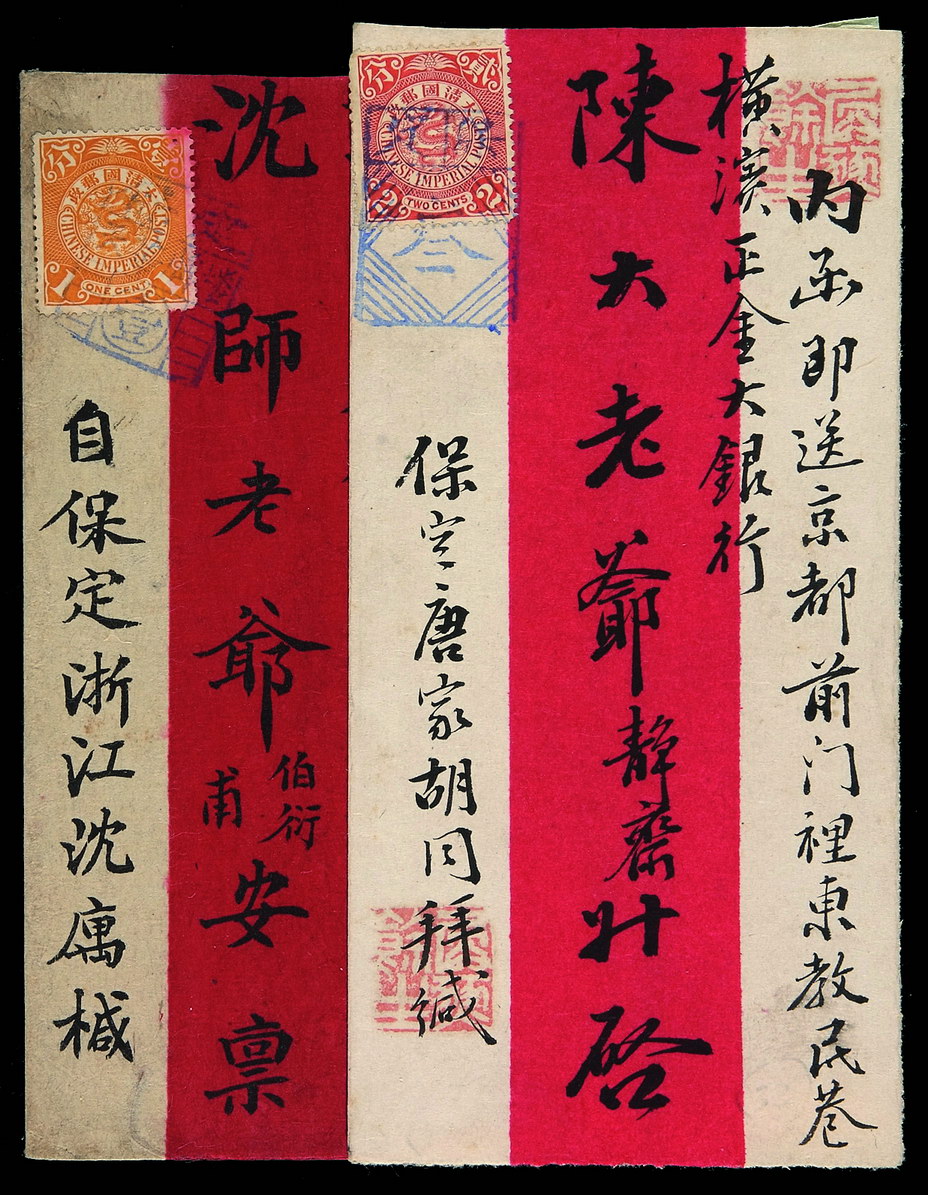 内函即送京都前门裡東教民巷
橫濱正金大銀行
陳大老爺静齋升啓
保定唐家胡同拜緘
貳分
大清國郵政
CHINESE IMPERIAL POST
2 TWO CENTS 2
沈師老爺伯衍甫安禀
自保定浙江沈寓椷
分
大清國郵政
CHINESE IMPERIAL POST
1 ONE CENT 1
壹